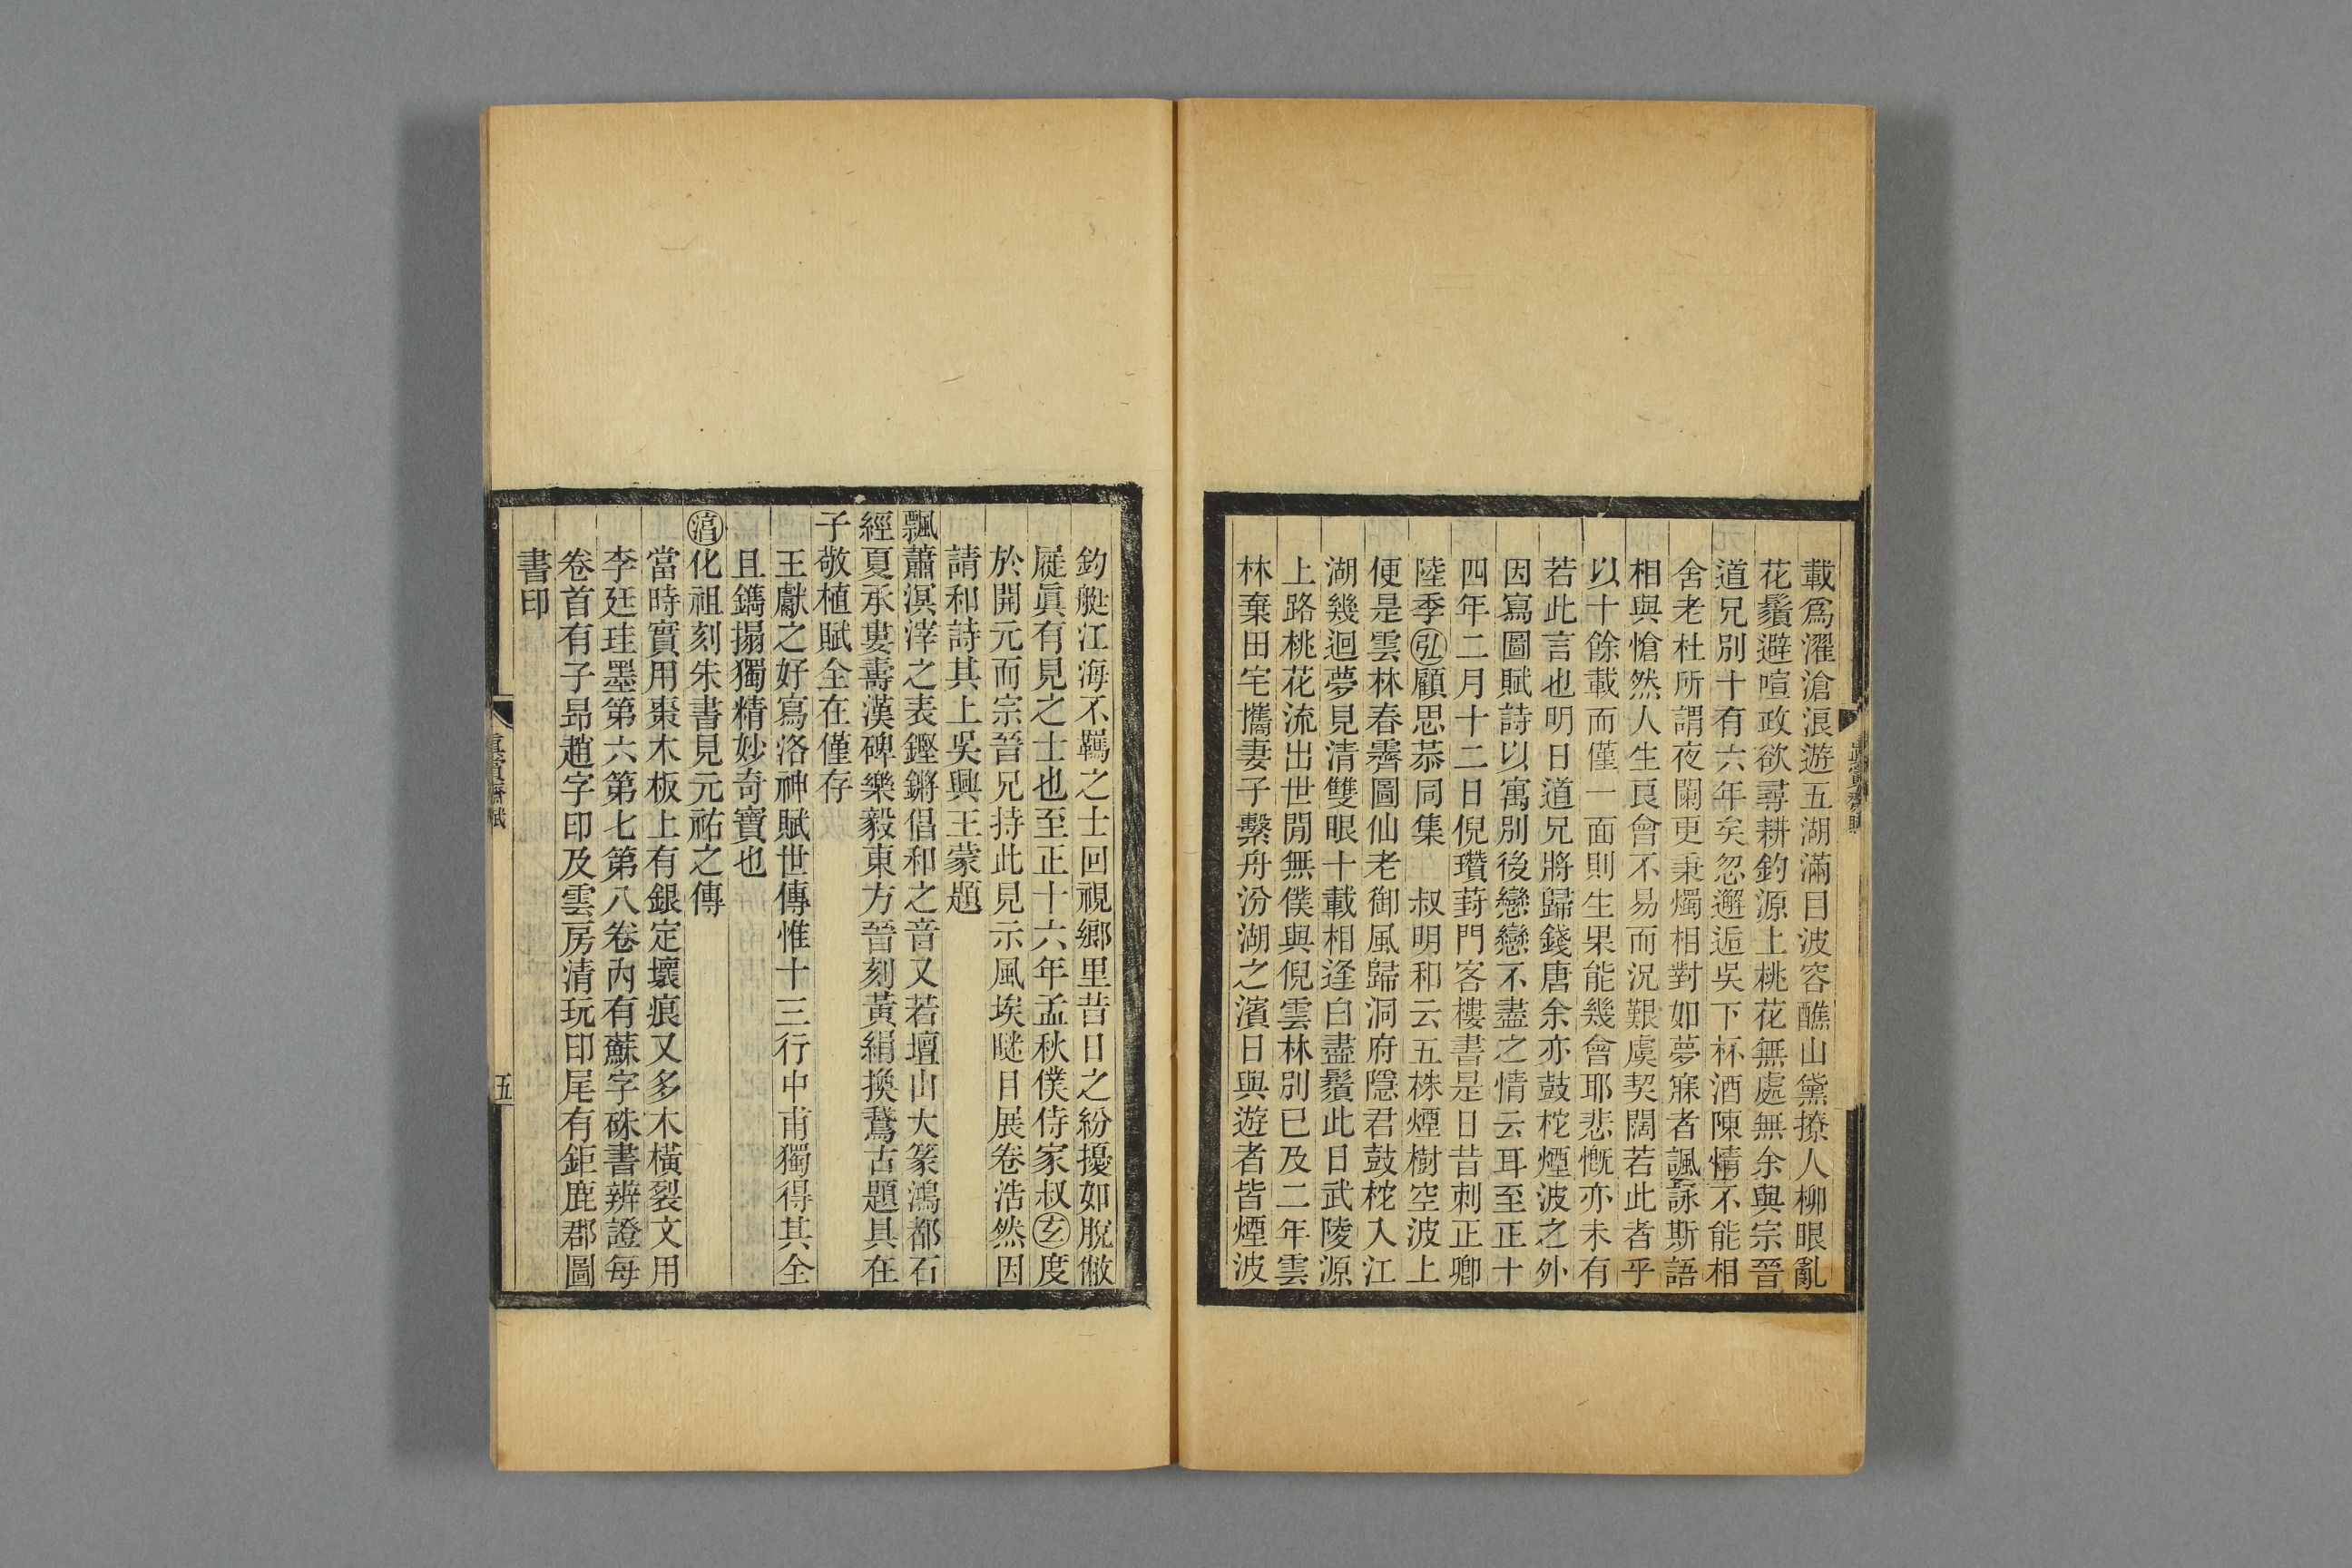 載爲濯滄浪遊五湖滿目波容醮山黛撩人柳眼亂
花鬚避喧政欲尋耕釣源上桃花無處無余與宗晉
道兄別十有六年矣忽邂逅吳下杯酒陳情不能相
舍老杜所謂夜闌更秉燭相對如夢寐者諷詠斯語
相與愴然人生良會不易而況艱虞契闊若此者乎
以十餘載而僅一面則生果能幾會耶悲慨亦未有
若此言也明日道兄將歸錢唐余亦鼓柁煙波之外
因寫圖賦詩以寓別後戀戀不盡之情云耳至正十
四年二月十二日倪瓚葑門客樓書是日昔刺正卿
陸季弘顧思恭同集 叔明和云五株煙樹空波上
便是雲林春霽圖仙老御風歸洞府隱君鼓柁入江
湖幾迴夢見清雙眼十載相逢白盡鬚此日武陵源
上路桃花流出世閒無僕與倪雲林別已及二年雲
林棄田宅攜妻子繫舟汾湖之濱日與遊者皆煙波
眞賞齋賦
釣艇江海不羈之士回視鄉里昔日之紛擾如脫敝
屣眞有見之士也至正十六年孟秋僕侍家叔玄度
於開元而宗晉兄持此見示風埃眯目展卷浩然因
請和詩其上吳興王蒙題
飄蕭溟涬之表鏗鏘倡和之音又若壇山大篆鴻都石
經夏承婁壽漢碑樂毅東方晉刻黃絹換鵞古題具在
子敬植賦全在僅存
王獻之好寫洛神賦世傳惟十三行中甫獨得其全
且鐫搨獨精妙奇寶也
湻化祖刻朱書見元祐之傳
當時實用棗木板上有銀定壞痕又多木橫裂文用
李廷珪墨第六第七第八卷內有蘇字硃書辨證每
卷首有子昂趙字印及雲房清玩印尾有鉅鹿郡圖
書印
眞賞齋賦
五